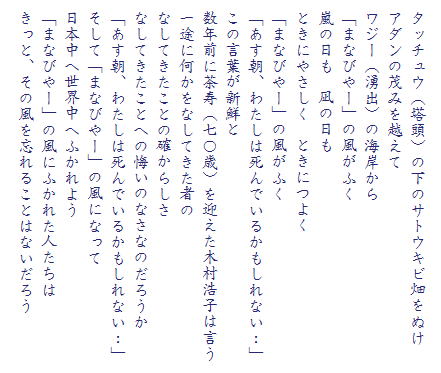 タッチュウ（塔頭）の下のサトウキビ畑をぬけ
アダンの茂みを越えて
ワジー（湧出）の海岸から
「まなびやー」の風がふく
嵐の日も　凪の日も
ときにやさしく　ときにつよく
「まなびやー」の風がふく
「あす朝、わたしは死んでいるかもしれない：」
この言葉が新鮮と
数年前に茶寿（七〇歳）を迎えた木村浩子は言う
一途に何かをなしてきた者の
なしてきたことの確からしさ
なしてきたことへの悔いのなさなのだろうか
「あす朝、わたしは死んでいるかもしれない：」
そして「まなびやー」の風になって
日本中へ世界中へふかれよう
「まなびやー」の風にふかれた人たちは
きっと、その風を忘れることはないだろう